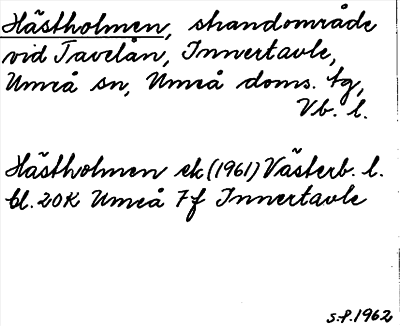 Hästholmen, strandområde
vid Tavelån, Innertavle,
Umeå sn, Umeå doms. tg,
Vb. l.
Hästholmen ek (1961) Västerb. l.
bl. 20K Umeå 7f Innertavle
S.P. 1962